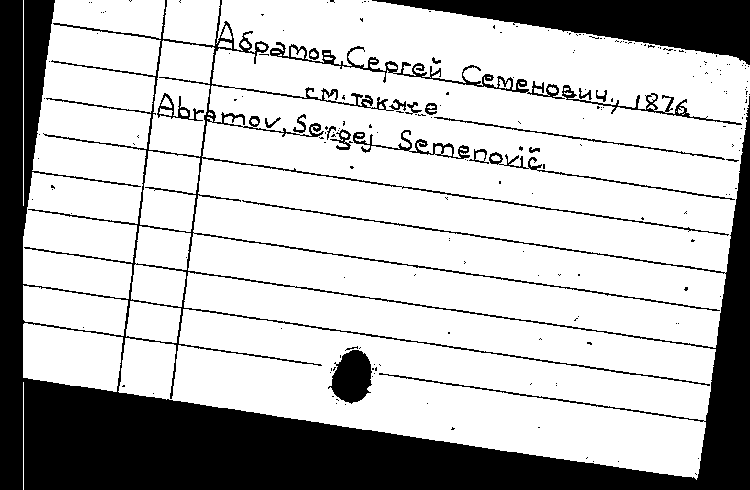 Абрамов, Сергей Семенович, 1876
см. также
Abramov, Sergej Semenovič.